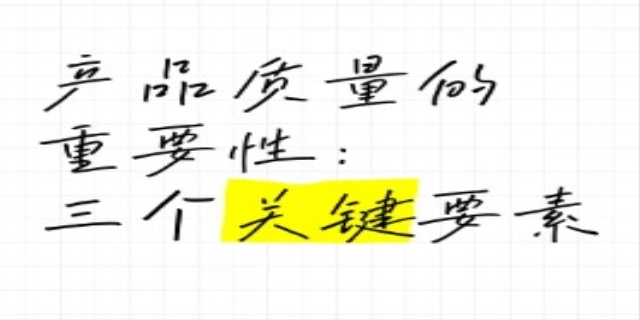 产品质量的
重要性：
三个关键要素